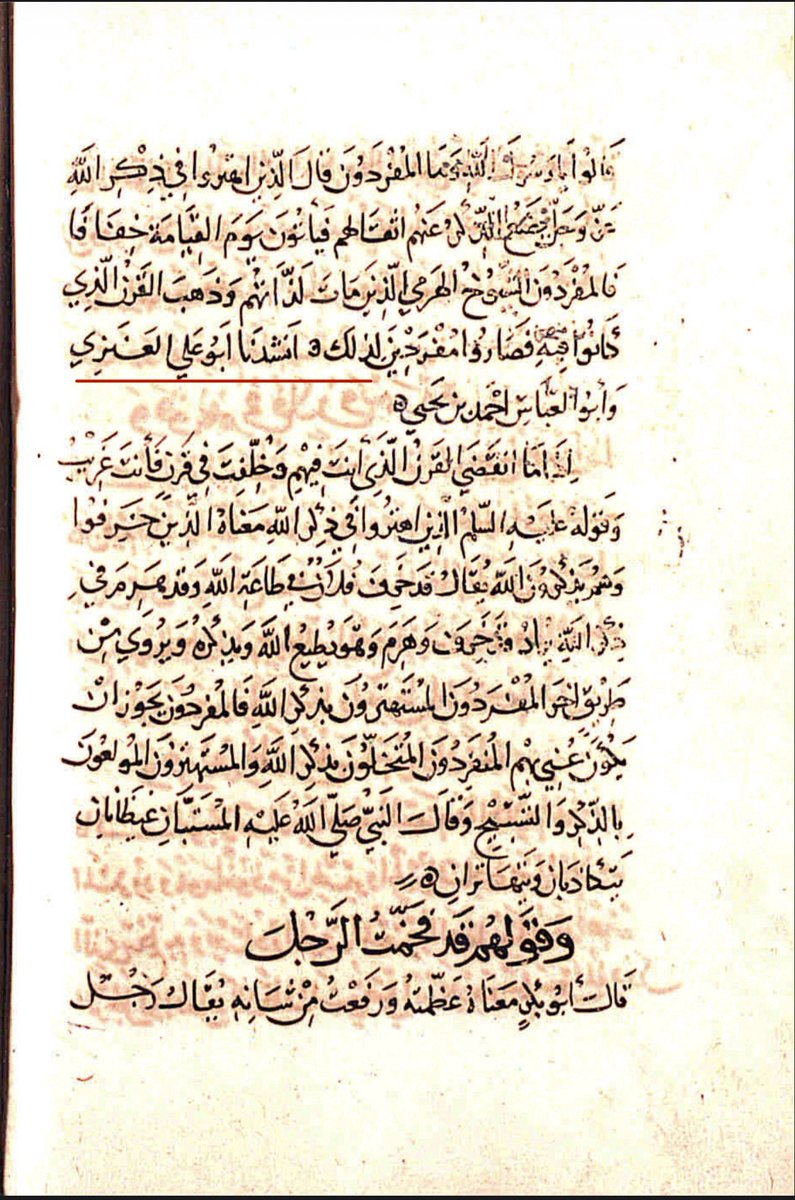 قَالُوا يَا رَسُولَ اللَّهِ وَمَا المُفَرِّدُونَ قَالَ الَّذِينَ اهتروا فِي ذِكْرِ اللَّهِ
عَزَّ وَجَلَّ يَضَعُ الذِّكْرُ عَنْهُم اثْقَالَهم فَيَأتُونَ يَوَمَ القِيَامَةِ خِفَافًا
فَالمُفَرِّدُونَ الشُّيُوخُ الهَرمي الَّذِينَ مَاتَ لَذَّاتُهُم وَذَهَبَ القَرْنُ الَّذِي
كَانُوا فِيهِ فَصَارُوا مُفْرَدِيْنَ لذلك ه انشدنَا ابُو عَلي العَنَزِي
وَأبوا العَبَّاسِ احْمَد بن يَحْيَى ه
إذَا مَا انقَضَى القَرْنُ الَّذِي انتَ فِيهِمِ وَخُلِّفتَ فِي قَرنٍ فَأنتَ غَرِيْبُ
وَقولُه عَليَهِ السَّلم الَّذين اهتروا في ذِكر اللَّهِ مَعنَاهُ الَّذِينَ خَرفُوا
وَهُم يَذكُرُونَ اللَّهَ يُقَالُ قَد خَرِفَ فُلَانٌ في طَاعَةِ اللَّهِ وَقد هَرِمَ في
ذِكر اللَّهِ يُرَادُ قَد خَرِفَ وَهَرِمَ وَهوَ يُطِيعُ اللَّهَ وَيَذكُرُهُ وَيُروي مِن
طَرِيقٍ اخَر المُفَرِّدُونَ المُستَهتَرُونَ بذكرِ اللَّهِ فَالمُفَرِّدُونَ يَجُوزُ انْ
يَكُونَ عُنِيَ بِهِم المُنفَرِدُونَ المُتَخَلُّونَ بذِكرِ اللَّهِ وَالمُسْتَهتَرُونَ المُولَعُونَ
بِالذِّكرِ وَالتَّسْبيْحِ وَقَالَ النَبيُّ صَلَّى اللَّهُ عَلَيهِ المُسْتَبَّانِ شَيطَانَانِ
يَتكَاذبَانِ وَيَتَهَاتَرانِ ه
وَقَوْلهُم قَد فَخَّمْتُ الرَّجُلَ
قَالَ أبُو بَكرٍ مَعنَاهُ عَظَّمتهُ وَرَفَعْتُ مِنْ شَانِهِ يُقَالُ رَجُلٌ